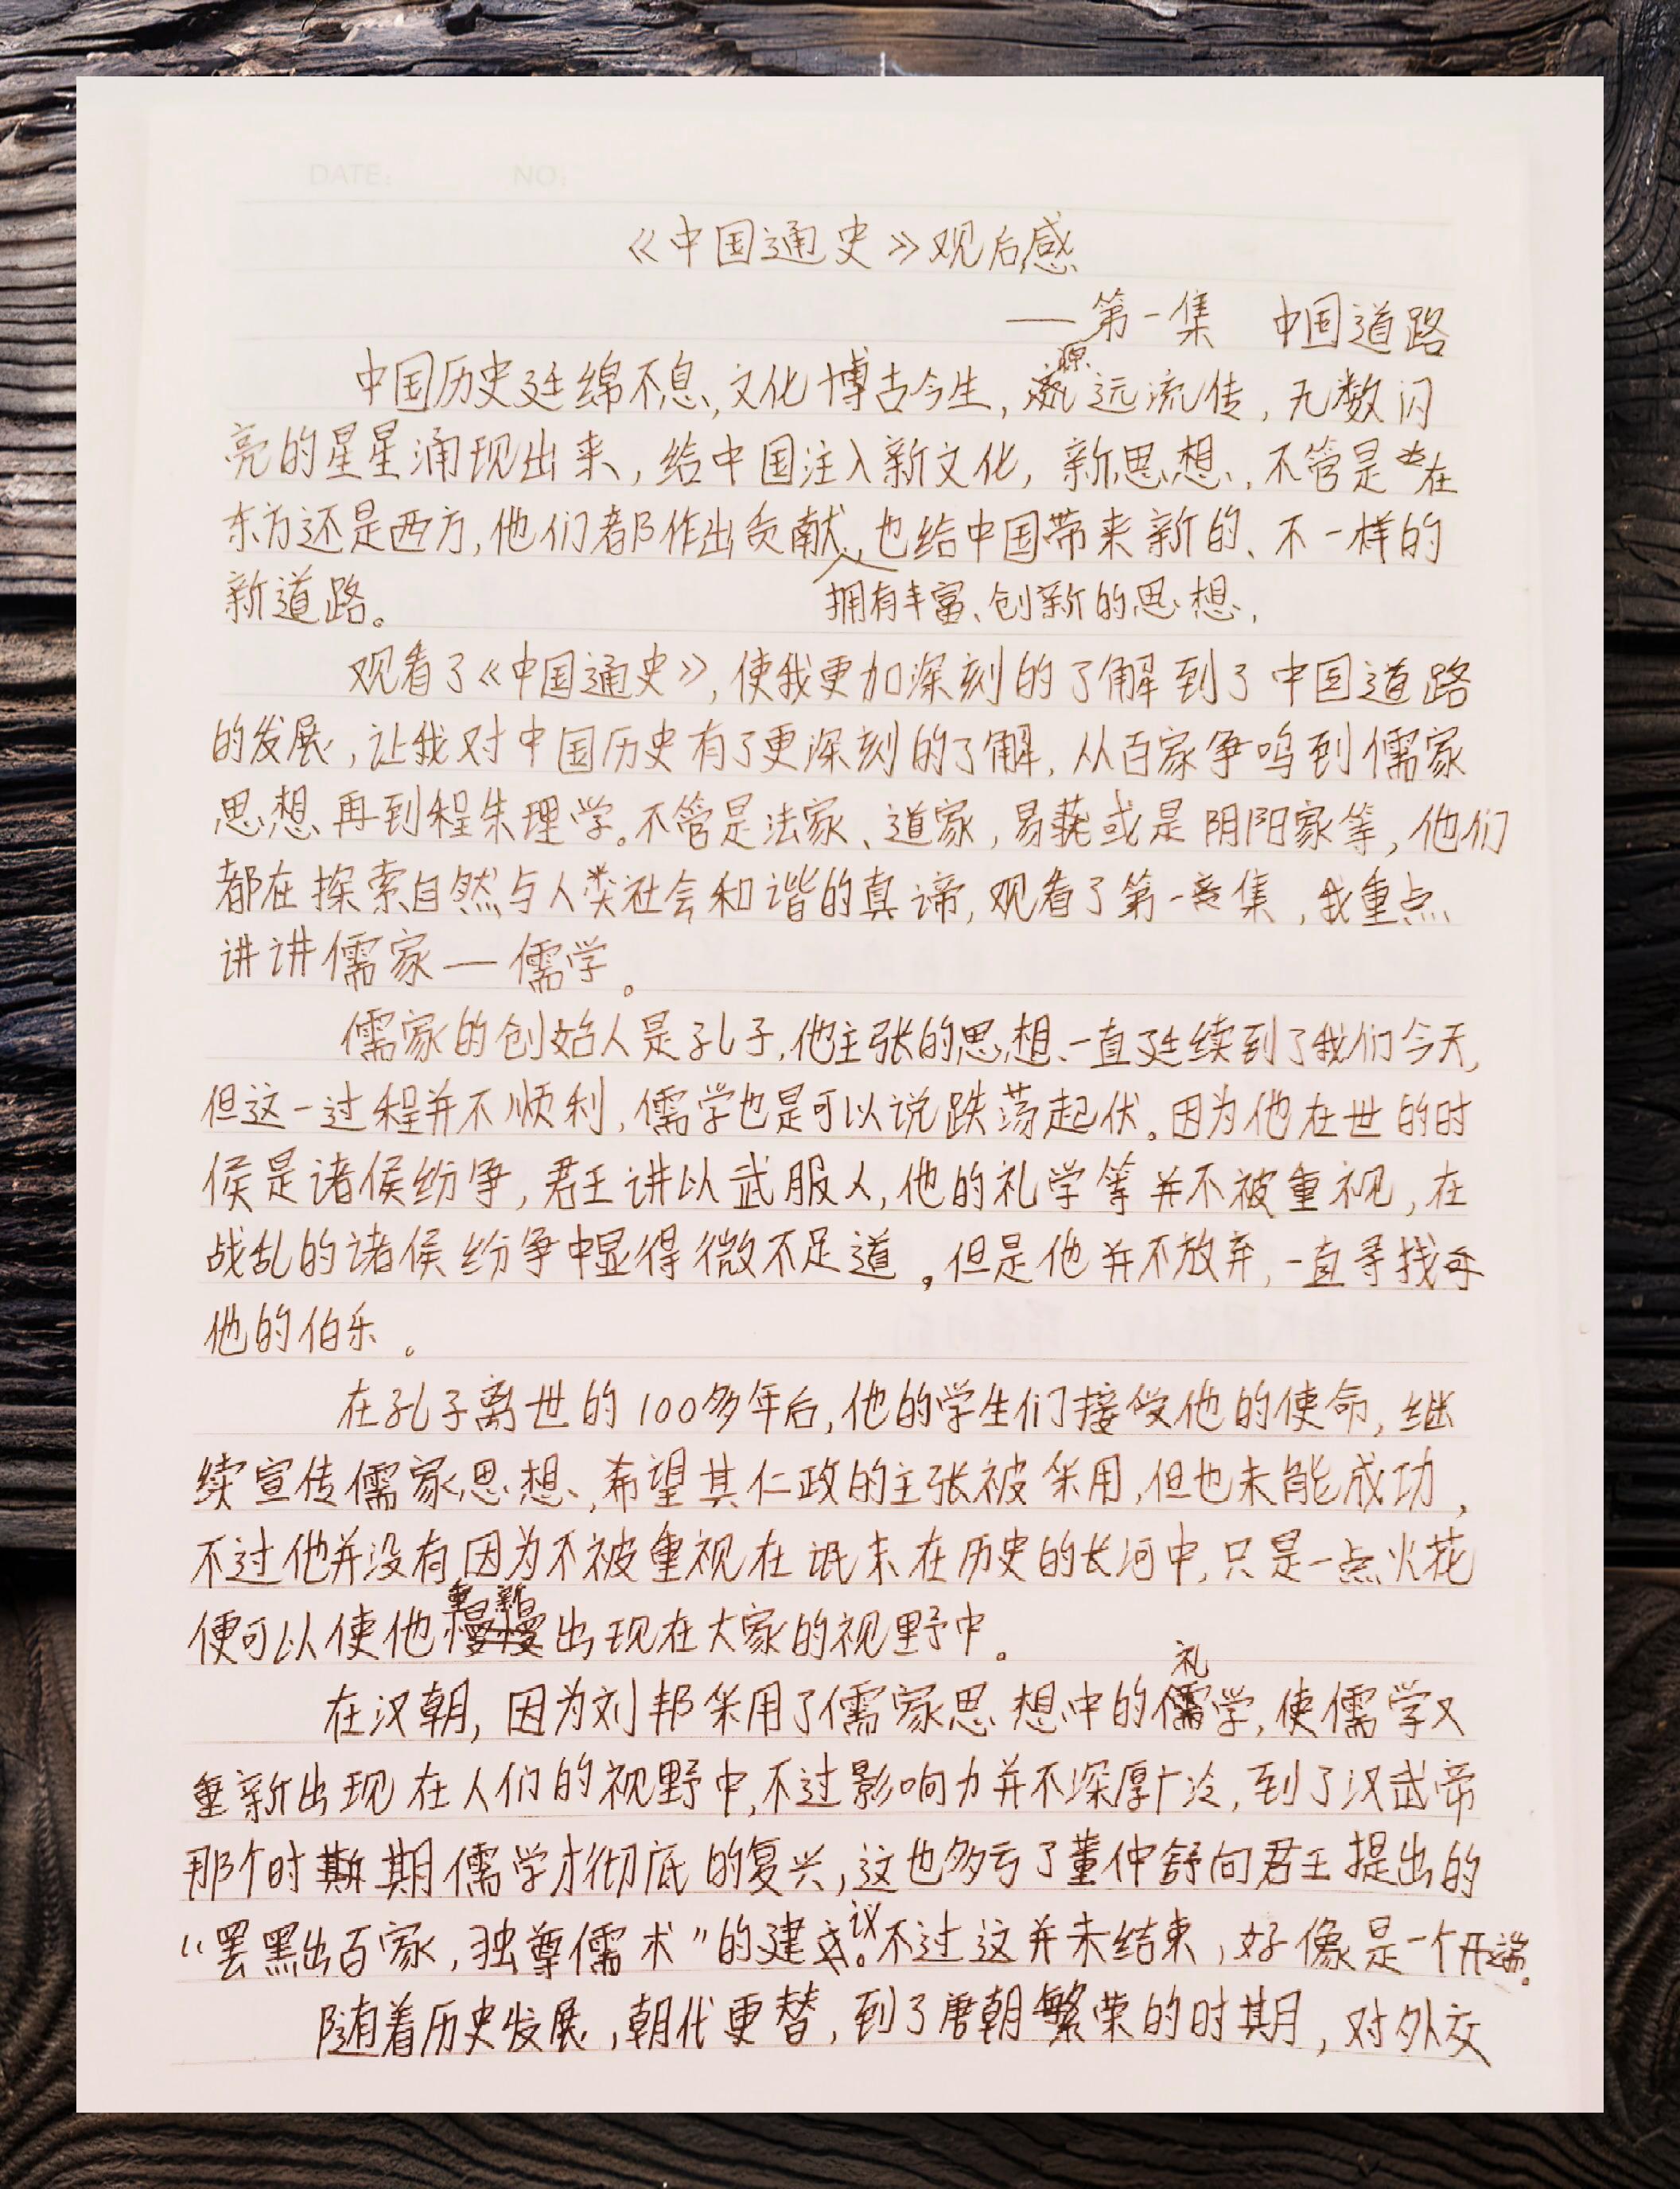 DATE: NO:
《中国通史》观后感
——第一集 中国道路
中国历史延绵不息,文化博古今生,源远流传,无数闪
亮的星星涌现出来,给中国注入新文化,新思想,不管是在
东方还是西方,他们都作出贡献,拥有丰富、创新的思想,也给中国带来新的、不一样的
新道路。
观看了《中国通史》,使我更加深刻的了解到了中国道路
的发展,让我对中国历史有了更深刻的了解,从百家争鸣到儒家
思想再到程朱理学。不管是法家、道家,易或是阴阳家等,他们
都在探索自然与人类社会和谐的真谛,观看了第一集,我重点
讲讲儒家—儒学。
儒家的创始人是孔子,他主张的思想一直延续到了我们今天,
但这一过程并不顺利,儒学也是可以说跌荡起伏。因为他在世的时
侯是诸侯纷争,君王讲以武服人,他的礼学等并不被重视,在
战乱的诸侯纷争中显得微不足道,但是他并不放弃,一直寻找
他的伯乐。
在孔子离世的100多年后,他的学生们接受他的使命,继
续宣传儒家思想,希望其仁政的主张被采用,但也未能成功,
不过他并没有因为不被重视在泯末在历史的长河中,只是一点火花
便可以使他重新出现在大家的视野中。
在汉朝,因为刘邦采用了儒家思想中的礼学,使儒学又
重新出现在人们的视野中,不过影响力并不深厚广泛,到了汉武帝
那个时期儒学才彻底的复兴,这也多亏了董仲舒向君王提出的
“罢黜百家,独尊儒术”的建议。不过这并未结束,好像是一个开端。
随着历史发展,朝代更替,到了唐朝繁荣的时期,对外交